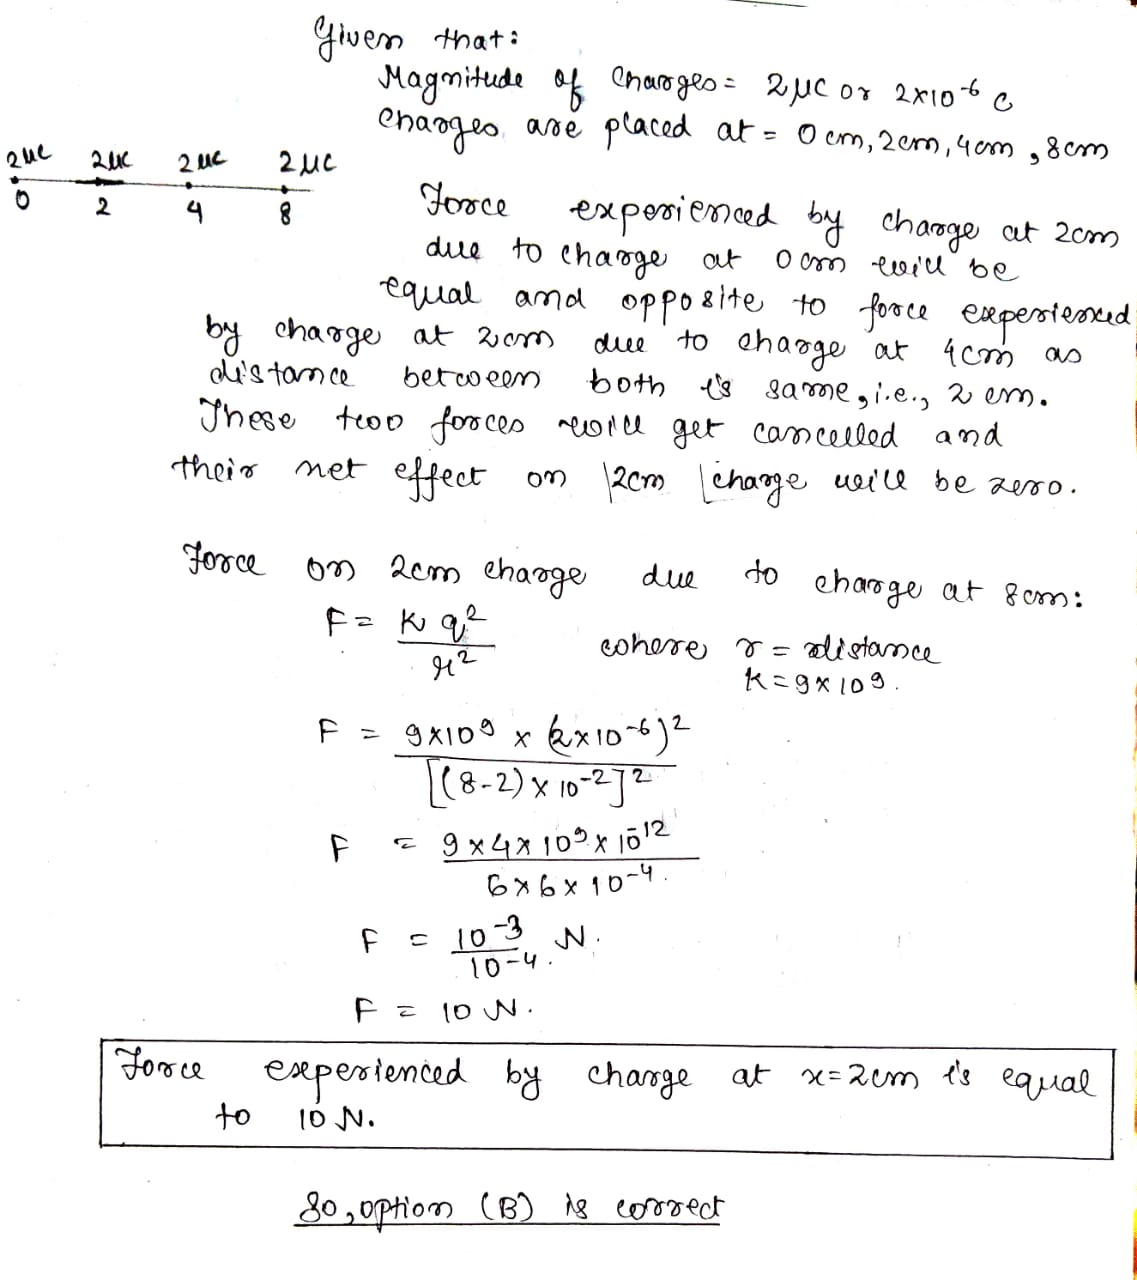 Given that:
Magnitude of Charges = 2 μC or 2×10⁻⁶ C
Charges are placed at = 0 cm, 2cm, 4cm, 8cm
2μC 2μC 2μC 2μC
0 2 4 8
Force experienced by charge at 2cm
due to charge at 0 cm will be
equal and opposite to force experienced
by charge at 2cm due to charge at 4cm as
distance between both is same, i.e., 2 cm.
These two forces will get cancelled and
their net effect on |2cm |charge will be zero.
Force on 2cm charge due to charge at 8cm:
F = K q²
r²
where r = distance
K = 9×10⁹.
F = 9×10⁹ × (2×10⁻⁶)²
[(8-2)×10⁻²]²
F = 9×4×10⁹×10⁻¹²
6×6×10⁻⁴.
F = 10⁻³ N.
10⁻⁴.
F = 10 N.
Force experienced by charge at x=2cm is equal
to 10 N.
So, option (B) is correct